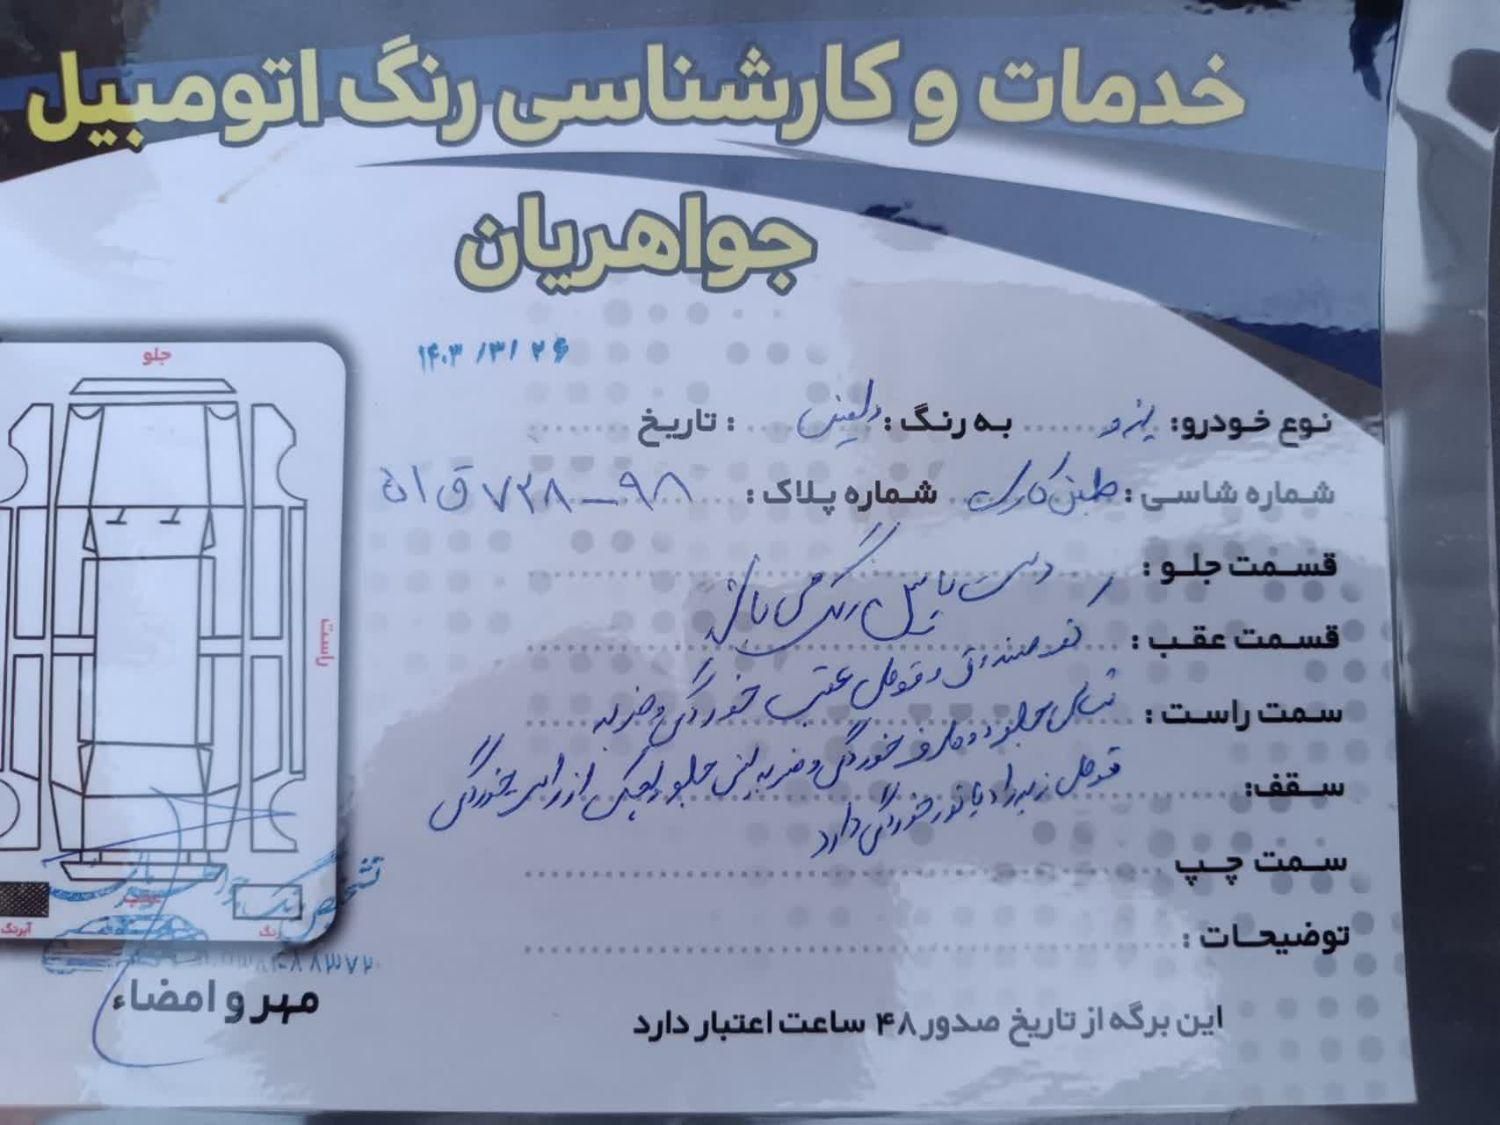 خدمات و کارشناسی رنگ اتومبیل
جواهریان
۱۴۰۳/۳/۲۶
نوع خودرو: پژو به رنگ: دلفینی تاریخ :
شماره شاسی : طبق کارت شماره پلاک : ۹۸ – ۷۳۸ ق ۵۱
قسمت جلو : دست پاش رنگ می باشد
قسمت عقب : کف صندوق و قوطی عقب خوردگی و ضربه
سمت راست : شاسی جلو دو طرف خوردگی و ضربه سینی جلو پیچی از زاپاس خوردگی
سقف: قوطی زیر رادیاتور خوردگی دارد
سمت چپ
توضیحات :
این برگه از تاریخ صدور ۴۸ ساعت اعتبار دارد
جلو
راست
رنگ
آبرنگ
تشخیص رنگ
مهر و امضاء